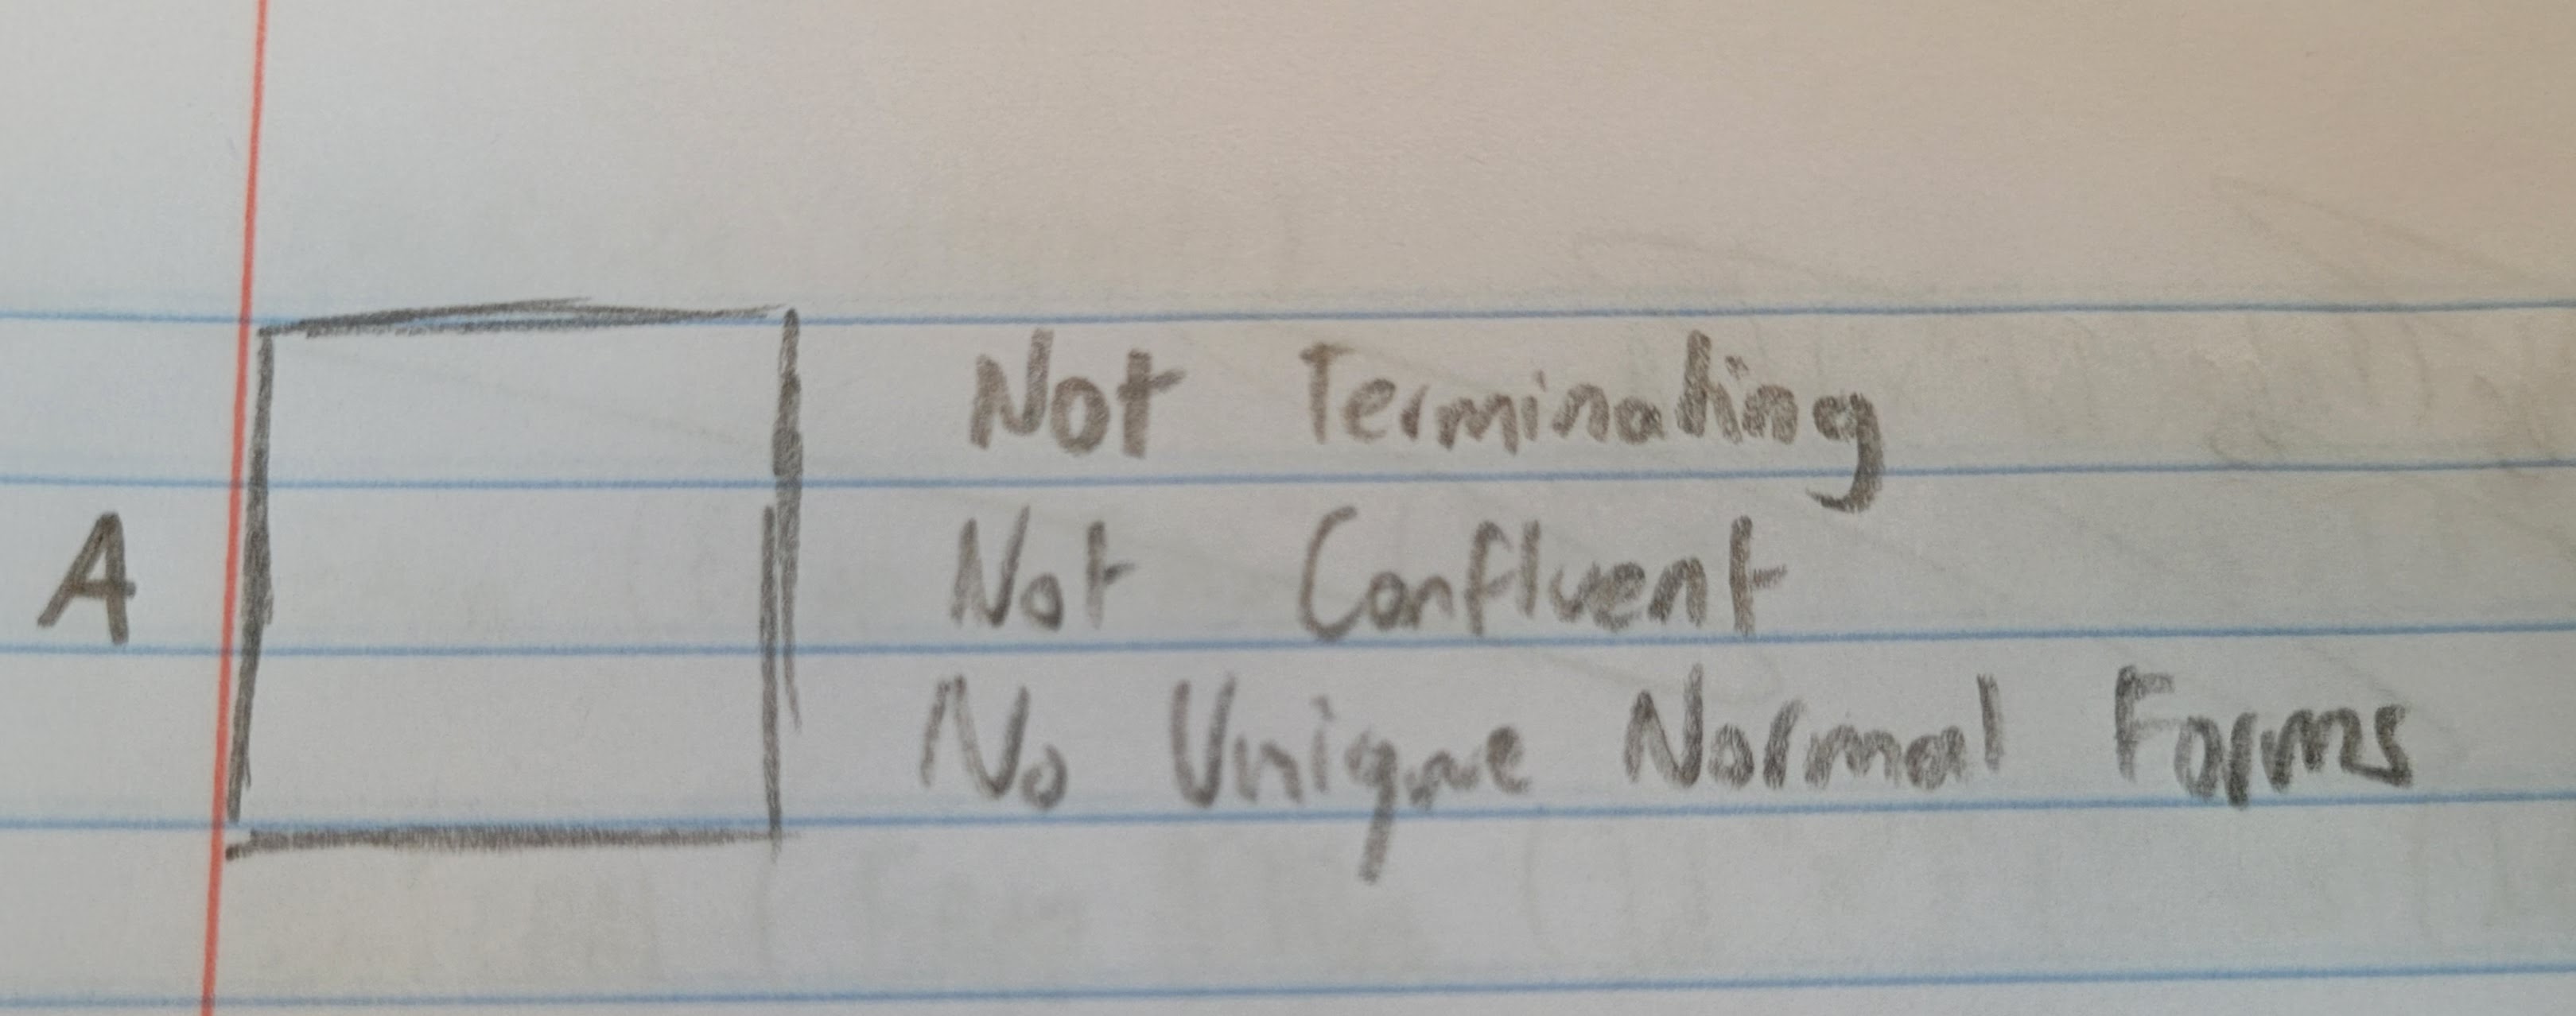 Not Terminating
A Not Confluent
No Unique Normal Forms